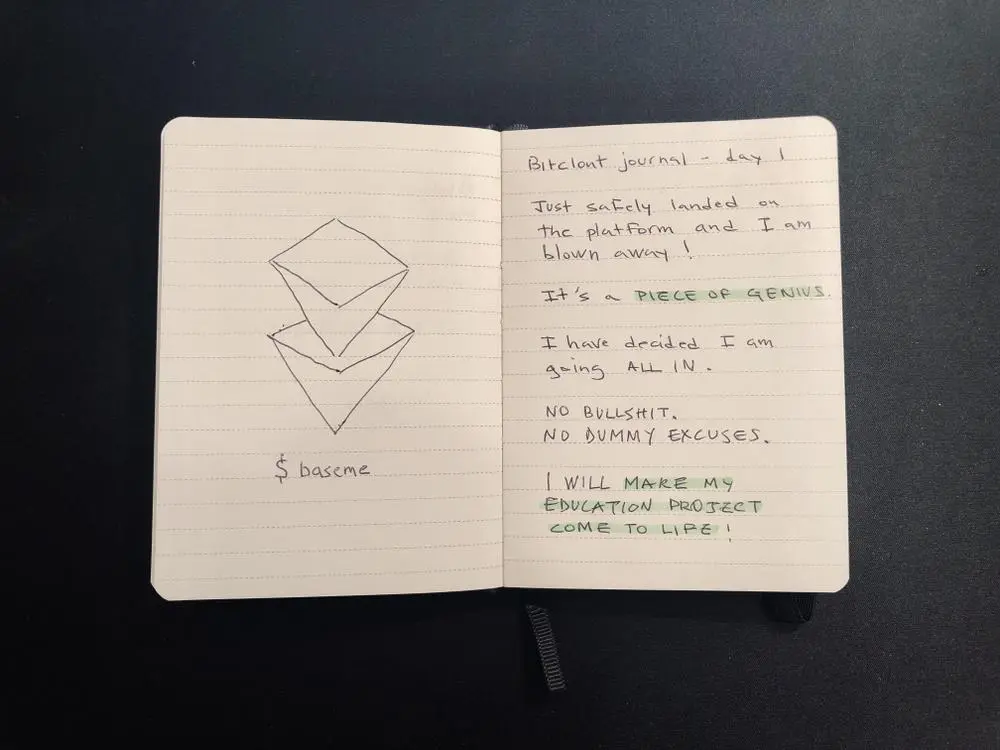 $ baseme
Bitclout journal - day 1
Just safely landed on
the platform and I am
blown away !
It's a PIECE OF GENIUS.
I have decided I am
going ALL IN.
NO BULLSHIT.
NO DUMMY EXCUSES.
I WILL MAKE MY
EDUCATION PROJECT
COME TO LIFE !